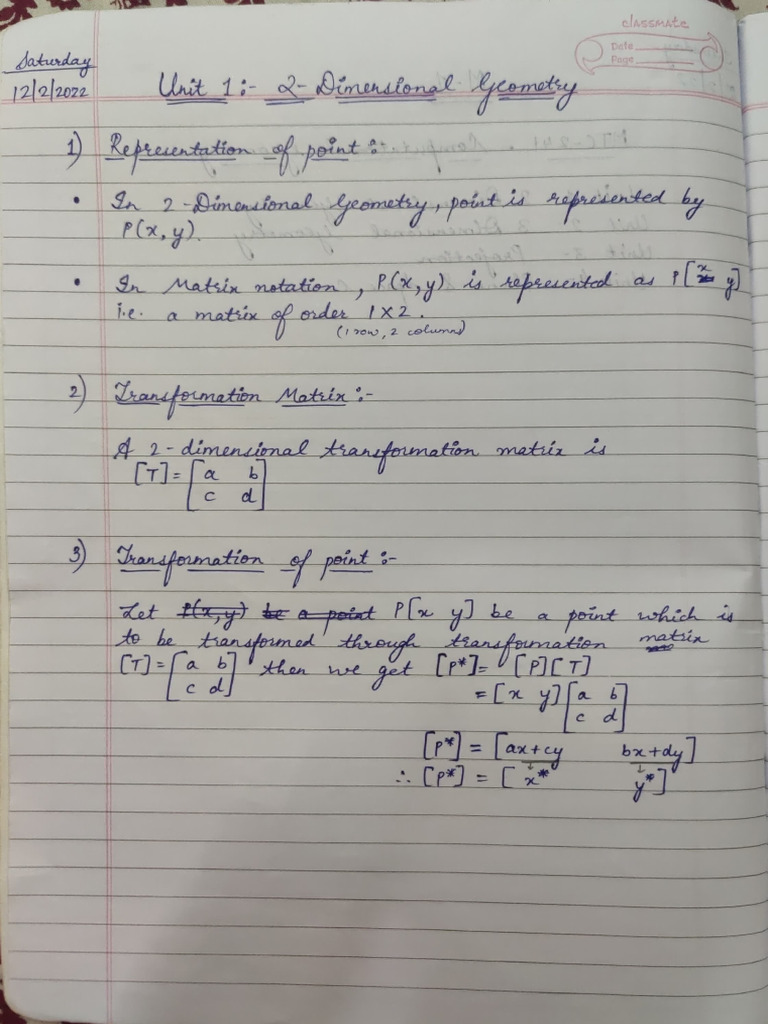 classmate
Date
Page
Saturday
12/2/2022
Unit 1:- 2-Dimensional Geometry
1) Representation of point :-
• In 2-Dimensional Geometry, point is represented by
P(x, y).
• In Matrix notation, P(x, y) is represented as P[x y]
i.e. a matrix of order 1X2.
(1 row, 2 columns)
2) Transformation Matrix :-
A 2-dimensional transformation matrix is
[T] = [a b
c d]
3) Transformation of point :-
Let P(x, y) be a point P[x y] be a point which is
to be transformed through transformation matrix
[T] = [a b
c d] then we get [P*] = [P][T]
= [x y] [a b
c d]
[P*] = [ax+cy bx+dy]
∴ [P*] = [x* y*]